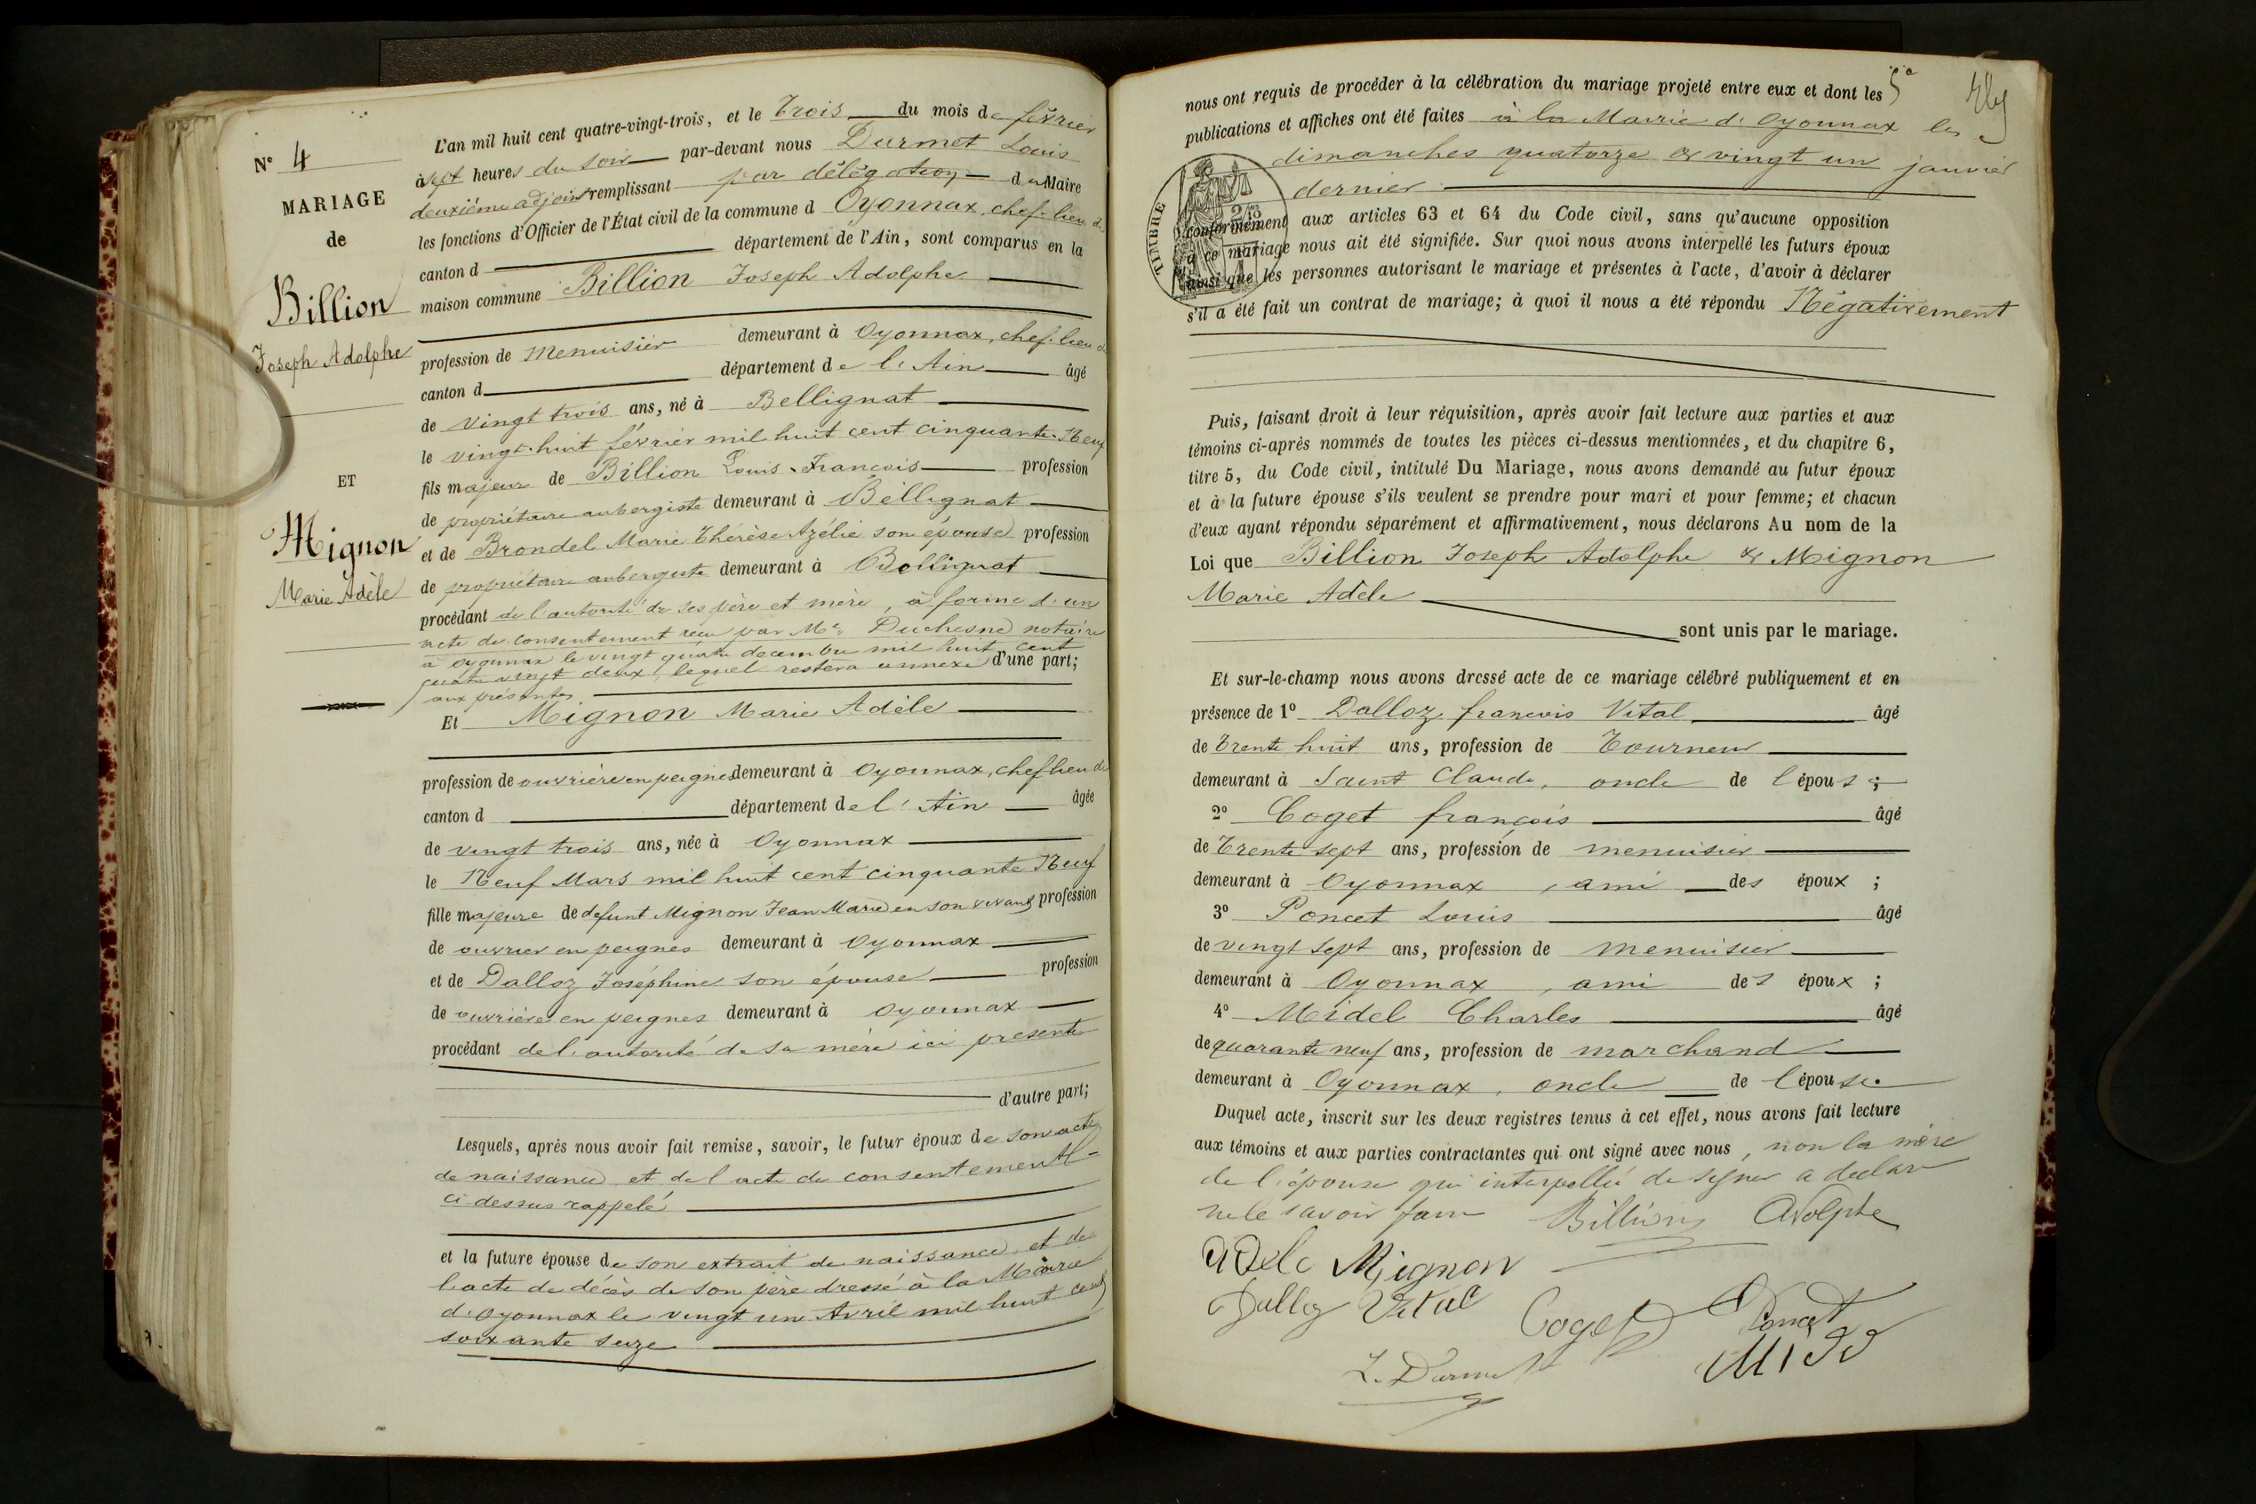 N° 4
MARIAGE
de
Billion
Joseph Adolphe
ET
Mignon
Marie Adèle
L'an mil huit cent quatre-vingt-trois, et le Trois du mois de février
à sept heures du soir par-devant nous Durmet Louis
deuxième adjoint remplissant par délégation du Maire
les fonctions d'Officier de l'État civil de la commune d Oyonnax, chef-lieu de
canton d département de l'Ain, sont comparus en la
maison commune Billion Joseph Adolphe
profession de menuisier demeurant à Oyonnax, chef-lieu de
canton d département de l'Ain âgé
de vingt trois ans, né à Bellignat
le vingt-huit février mil huit cent cinquante-Neuf
fils majeur de Billion Louis-François profession
de propriétaire aubergiste demeurant à Bellignat
et de Brondel Marie Thérèse Azélie son épouse profession
de propriétaire aubergiste demeurant à Bellignat
procédant de l'autorité de ses père et mère, à forme d'un
acte de consentement reçu par Me Duchesne notaire
à Oyonnax le vingt quatre decembre mil huit cent
quatre vingt deux, lequel restera annexé d'une part;
aux présentes
Et Mignon Marie Adèle
profession de ouvrière en peignes demeurant à Oyonnax, chef lieu de
canton d département de l'Ain âgée
de vingt trois ans, née à Oyonnax
le Neuf Mars mil huit cent cinquante Neuf
fille majeure de defunt Mignon Jean Marie en son vivant profession
de ouvrier en peignes demeurant à Oyonnax
et de Dalloz Joséphine son épouse profession
de ouvrière en peignes demeurant à Oyonnax
procédant de l'autorité de sa mère ici presente
d'autre part;
Lesquels, après nous avoir fait remise, savoir, le futur époux de son acte
de naissance et de l'acte de consentement
ci dessus rappelé
et la future épouse de son extrait de naissance et de
l'acte de décès de son père dressé à la Mairie
d'Oyonnax le vingt un Avril mil huit cent
soixante seize
nous ont requis de procéder à la célébration du mariage projeté entre eux et dont les
publications et affiches ont été faites à la Mairie d'Oyonnax les
dimanches quatorze & vingt un janvier
dernier
TIMBRE
conformément aux articles 63 et 64 du Code civil, sans qu'aucune opposition
à ce mariage nous ait été signifiée. Sur quoi nous avons interpellé les futurs époux
ainsi que les personnes autorisant le mariage et présentes à l'acte, d'avoir à déclarer
s'il a été fait un contrat de mariage; à quoi il nous a été répondu Négativement
Puis, faisant droit à leur réquisition, après avoir fait lecture aux parties et aux
témoins ci-après nommés de toutes les pièces ci-dessus mentionnées, et du chapitre 6,
titre 5, du Code civil, intitulé Du Mariage, nous avons demandé au futur époux
et à la future épouse s'ils veulent se prendre pour mari et pour femme; et chacun
d'eux ayant répondu séparément et affirmativement, nous déclarons Au nom de la
Loi que Billion Joseph Adolphe & Mignon
Marie Adèle
sont unis par le mariage.
Et sur-le-champ nous avons dressé acte de ce mariage célébré publiquement et en
présence de 1° Dalloz françois Vital âgé
de Trente huit ans, profession de Tourneur
demeurant à Saint Claude, oncle de l'épouse;
2° Coget françois âgé
de Trente sept ans, profession de menuisier
demeurant à Oyonnax, ami des époux;
3° Poncet Louis âgé
de vingt sept ans, profession de menuisier
demeurant à Oyonnax, ami des époux;
4° Midel Charles âgé
de quarante neuf ans, profession de marchand
demeurant à Oyonnax, oncle de l'épouse.
Duquel acte, inscrit sur les deux registres tenus à cet effet, nous avons fait lecture
aux témoins et aux parties contractantes qui ont signé avec nous, non la mère
de l'épouse qui interpellée de signer a declaré
ne le savoir faire Billion Adolphe
Adele Mignon
Dalloz Vital Coget Poncet
L. Durmet